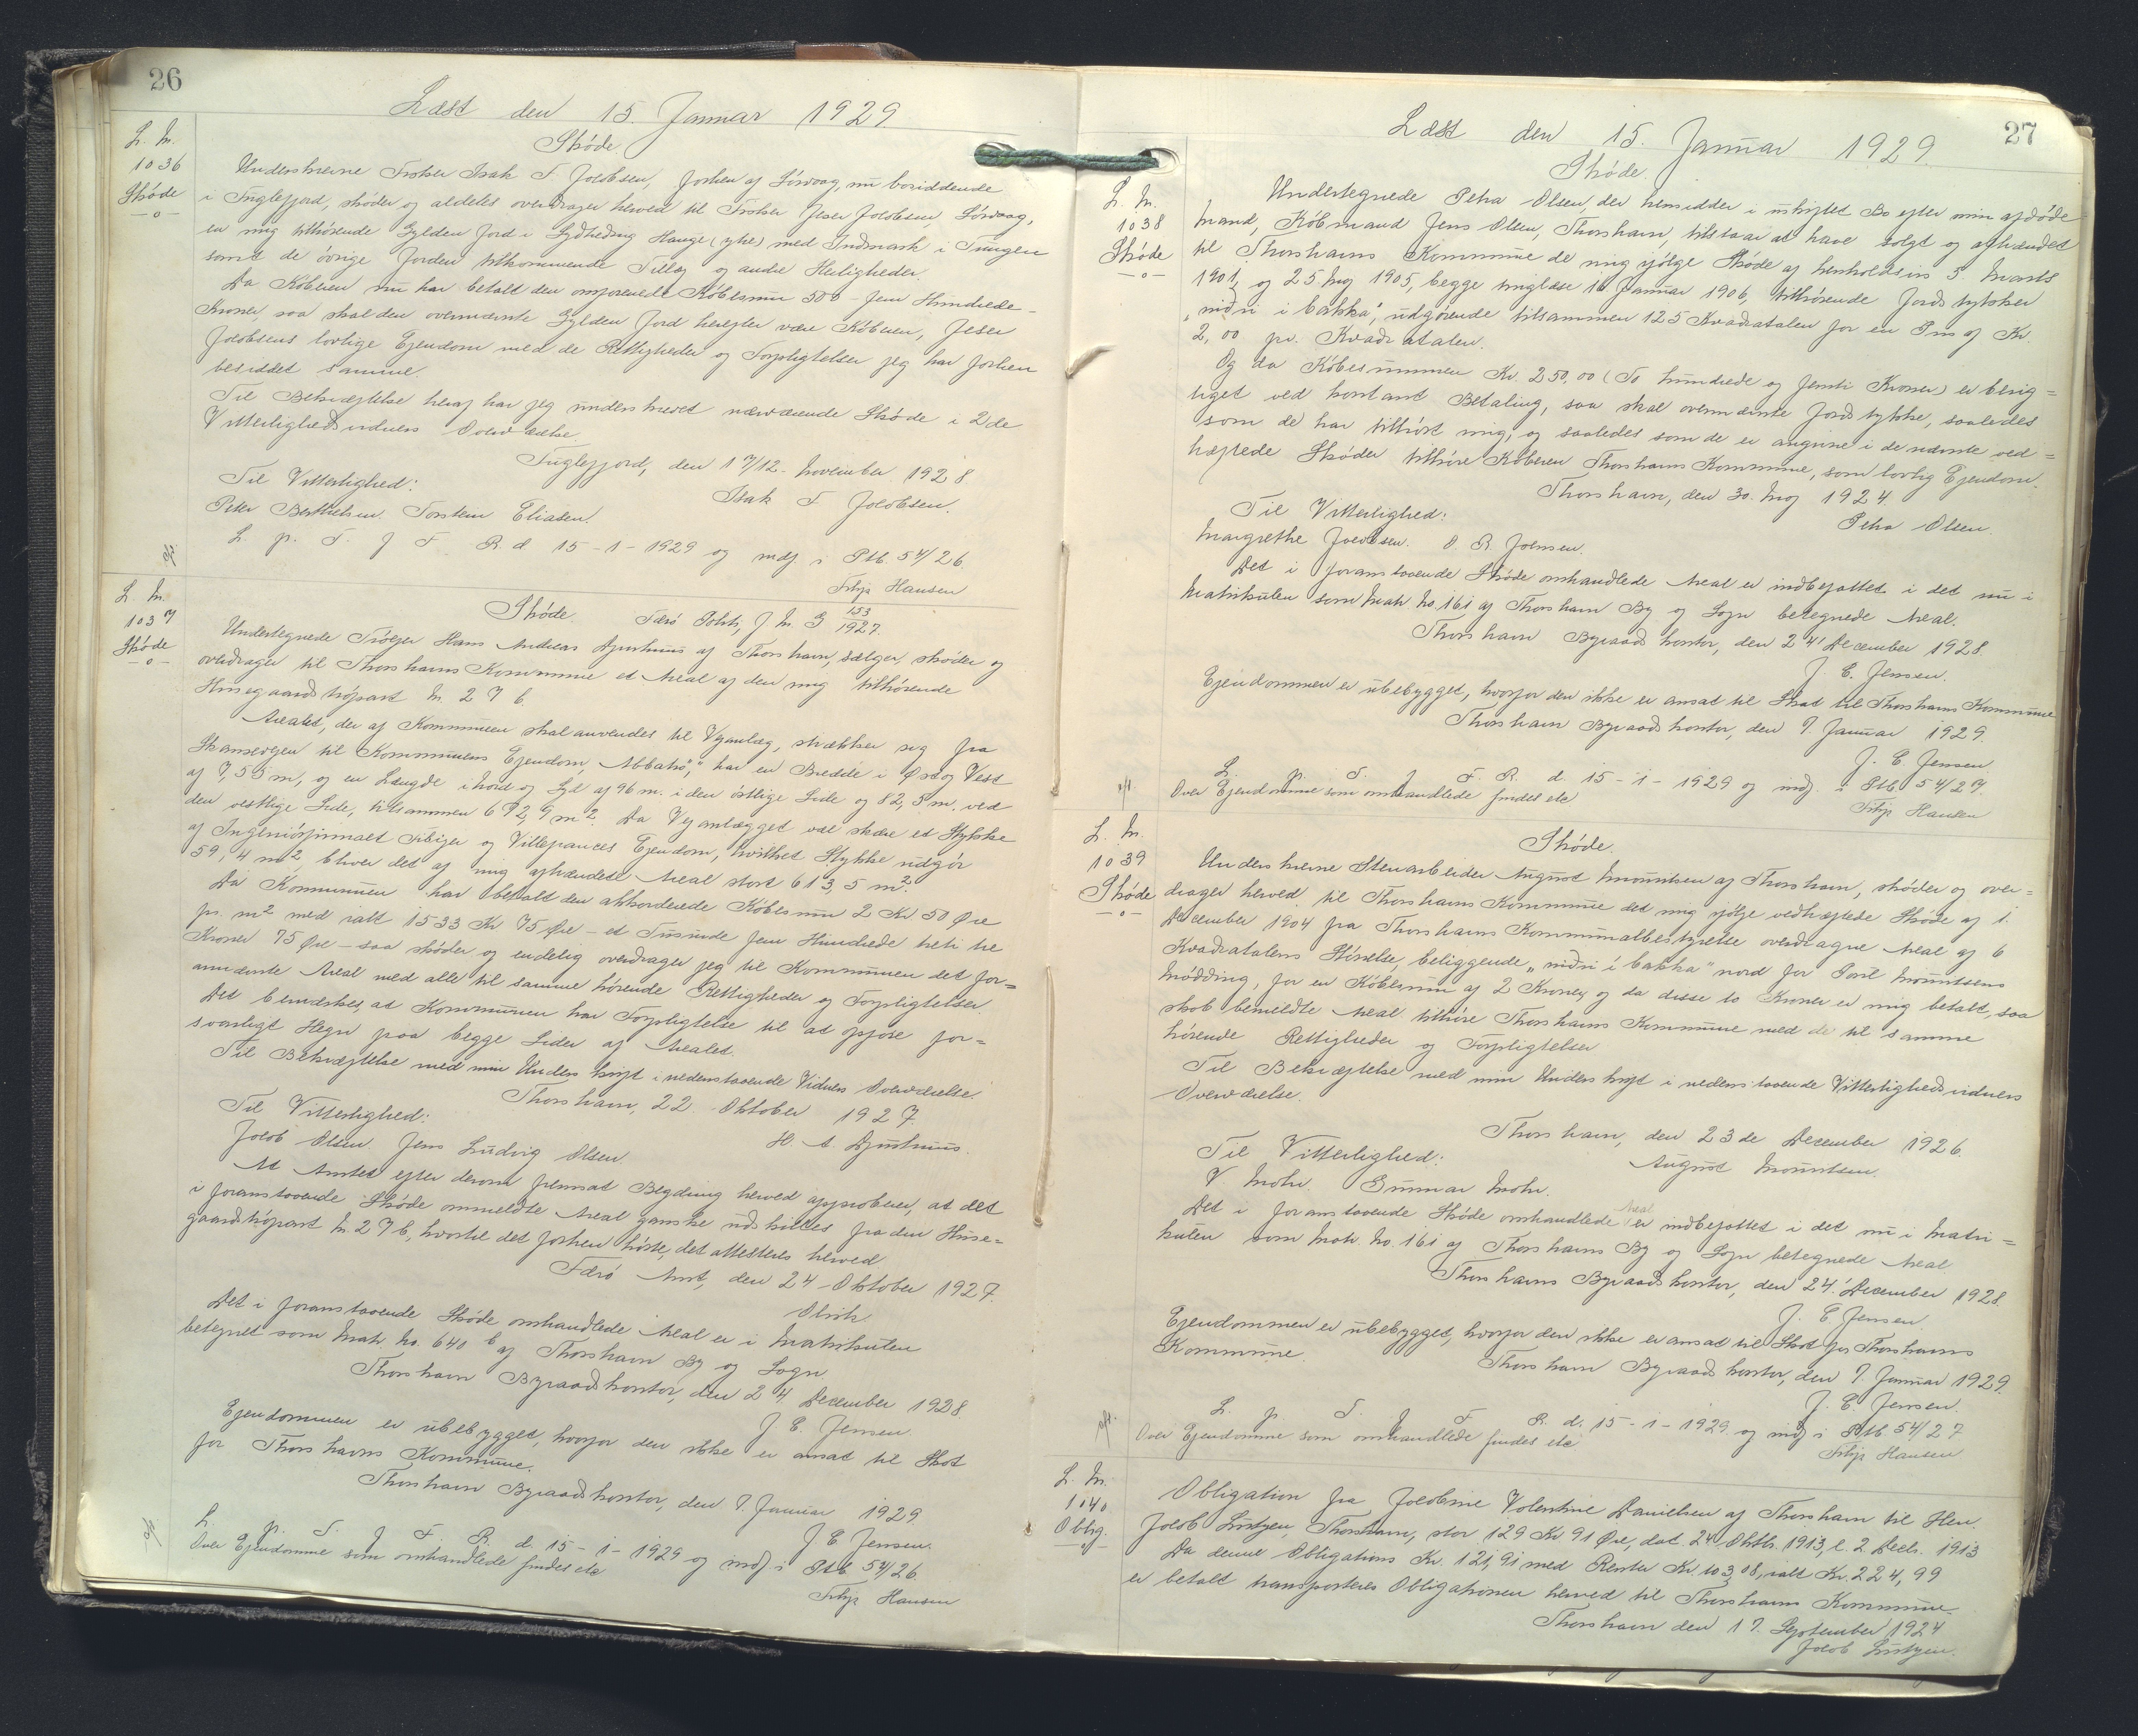 26
Læst den 15. Januar 1929.
L. M.
1036
Skøde
Skøde.
Underskrevne Trolser Isak F. Jacobsen, forhen af Sórvaag, nu boriddende
i Fuglefjord, skøder og aldeles overdrager herved til Jeser Jacobsen, Sórvaag,
en mig tilhørende Gylden Jord i Sydhedrug Hauge (ytre) med Indmark i Tungen
samt de óvrige Jorden tilkommende Tillæg og andre Herligheder.
Da Køberen nu har betalt den omforenede Købesum 500 - fem Hundrede -
Kroner, saa skal den ovennævnte Gylden Jord herefter være Køberen, Jeser
Jacobsens lovlige Ejendom med de Rettigheder og Forpligtelser jeg har forhen
besiddet samme.
Til Bekræftelse heraf har jeg underskrevet nærværende Skøde i 2de
Vitterlighedsvidners Overværelse.
Fuglefjord, den 17/12 - November 1928
Til Vitterlighed: Isak F Jacobsen.
Peter Berthelsen. Torstein Eliasen.
L. p. T. f F. R. d 15-1-1929 og indf. i Ptb. 54/26.
Filip Hansen
L. M.
1037
Skøde
Skøde. Færø Politi, J. No. G 153/1927.
Undertegnede Tróejer Hans Andreas Djurhuus af Thorshavn, sælger, skøder og
overdrager til Thorshavns Kommune et Areal af den mig tilhørende
Husegaardstrópart No. 276.
Arealet, der af Kommunen skal anvendes til Vejanlæg, strækker sig fra
Skansevejen til Kommunens Ejendom, "Abbatró", har en Bredde i Øst og Vest
af 7,55 m, og en Længde i Nord og Syd af 96 m. i den østlige Side og 82,5 m. ved
den vestlige Side, tilsammen 672,9 m². Da Vejanlægget vil skære et Stykke
af Ingeniørfirmaet Sibizer og Villefrances Ejendom, hvilket Stykke udgór
59,4 m², bliver det af mig afhændede Areal stort 613,5 m².
Da Kommunen har betalt den akkorderede Købesum 2 Kr 50 Øre
pr. m² med ialt 1533 Kr 75 Øre - et Tusinde fem Hundrede treti tre
Kroner 75 Øre - saa skøder og endelig overdrager jeg til Kommunen det for=
annævnte Areal med alle til samme hórende Rettigheder og Forpligtelser.
Det bemærkes, at Kommunen har Forpligtelse til at opføre for=
svarligt Hegn paa begge Sider af Arealet.
Til Bekræftelse med min Underskrift i nedenstaaende Vidners Overværelse.
Thorshavn, 22. Oktober 1927.
Til Vitterlighed: H. A. Djurhuus.
Jacob Olsen. Jens Ludvig Olsen.
At Amtet efter derom fremsat Begæring herved approberer, at det
i foranstaaende Skøde ommeldte Areal ganske udskilles fra den Huse=
gaardstrópart No 276, hvortil det forhen hórte, det attesteres herved
Færø Amt, den 24 - Oktober 1927.
Olrik
Det i foranstaaende Skøde omhandlede Areal er i Matrikulen
betegnet som Matr. No. 640 b af Thorshavn By og Sogn
Thorshavn Byraadskontor, den 24. December 1928.
J. C. Jensen.
Ejendommen er ubebygget, hvorfor den ikke er ansat til Skat
for Thorshavns Kommune.
Thorshavn Byraadskontor, den 7. Januar 1929
J C Jensen.
L. p. T. f. F. R. d 15-1-1929 og indf i Ptb 54/26.
Over Ejendomme som omhandlede findes etc
Filip Hansen
27
Læst den 15. Januar 1929.
L. M.
1038
Skøde
Skøde.
Undertegnede Petra Olsen, der hensidder i uskiftet Bo efter min afdøde
Mand, Købmand Jens Olsen, Thorshavn, tilstaar at have solgt og afhændet
til Thorshavns Kommune de mig ifølge Skøde af henholdsvis 5 Marts
1901, og 25 Maj 1905, begge tinglæst 16 Januar 1906, tilhørende Jordstykker
"niðri í bakka", udgørende tilsammen 125 Kvadratalen for en Pris af Kr.
2,00 pr. Kvadratalen.
Og da Købesummen Kr. 250,00 (To hundrede og femti Kroner) er berig=
tiget ved kontant Betaling, saa skal ovennævnte Jordstykke, saaledes
som de har tilhørt mig, og saaledes som de er angivne i de nævnte ved=
hæftede Skøder tilhøre Køberen Thorshavns Kommune, som lovlig Ejendom.
Thorshavn, den 30. Maj 1924.
Til Vitterlighed: Petra Olsen
Margrethe Jacobsen. O. R. Joensen.
Det i foranstaaende Skøde omhandlede Areal er indbefattet i det nu i
Matrikulen som Matr. No. 161 af Thorshavn By og Sogn betegnede Areal.
Thorshavn Byraadskontor, den 24' December 1928.
J. C. Jensen.
Ejendommen er ubebygget, hvorfor den ikke er ansat til Skat til Thorshavns Kommune
Thorshavn Byraadskontor, den 7. Januar 1929.
J. C. Jensen
L. p. T. f. F. R. d. 15-1-1929 og indf. i Ptb 54/27.
Over Ejendomme som omhandlede findes etc
Filip Hansen
L. M.
1039
Skøde
Skøde.
Underskrevne Stenarbeider August Mouritsen af Thorshavn, skøder og over=
drager herved til Thorshavns Kommune det mig ifølge vedhæftede Skøde af 1.
December 1904 fra Thorshavns Kommunalbestyrelse overdragne Areal af 6
Kvadratalens Størrelse, beliggende "niðri í bakka" nord for Poul Mouritsens
Mødding, for en Købesum af 2 Kroner, og da disse to Kroner er mig betalt, saa
skal bemeldte Areal tilhøre Thorshavns Kommune med de til samme
hørende Rettigheder og Forpligtelser
Til Bekræftelse med min Underskrift i nedenstaaende Vitterlighedsvidners
Overværelse.
Thorshavn, den 23de December 1926.
Til Vitterlighed: August Mouritsen.
V. Mohr. Gunnar Mohr.
Det i foranstaaende Skøde omhandlede Areal er indbefattet i det nu i Matri=
kulen som Matr. No. 161 af Thorshavns By og Sogn betegnede Areal
Thorshavns Byraadskontor, den 24' December 1928.
J. C. Jensen.
Ejendommen er ubebygget, hvorfor den ikke er ansat til Skat for Thorshavns
Kommune.
Thorshavn Byraadskontor, den 7. Januar 1929.
J. C. Jensen.
L. p. T. f. F. R. d. 15-1-1929 og indf i Ptb 54/27
Over Ejendomme som omhandlede findes etc
Filip Hansen
L. M.
1040
Oblig.
Obligation fra Jacobine Valentine Danielsen af Thorshavn til Hr.
Jacob Lützen, Thorshavn, stor 129 Kr 91 Øre, dat. 24. Oktbr. 1913, l. 2. Decb. 1913
Da denne Obligations Kr. 121,91 med Renter Kr. 103,08, ialt Kr. 224,99
er betalt transporteres Obligationen herved til Thorshavns Kommune
Thorshavn den 17. September 1924
Jacob Lützen.